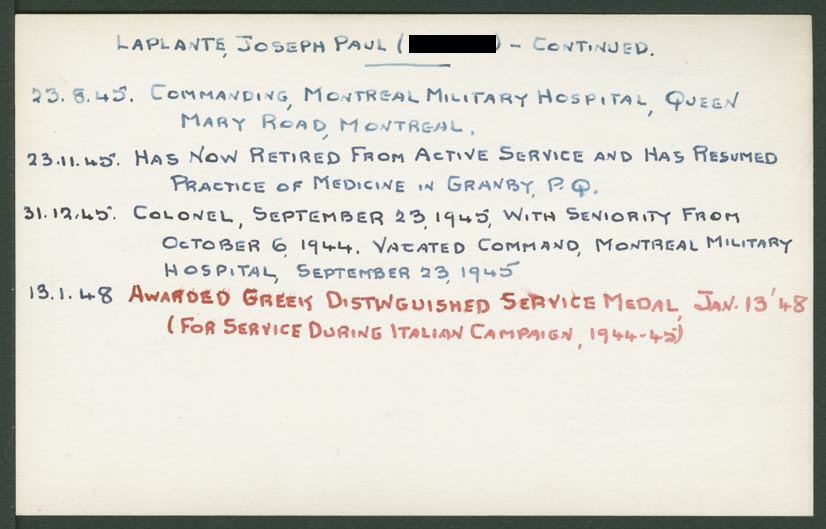 LAPLANTE, JOSEPH PAUL ( ) - CONTINUED.
23.8.45. COMMANDING, MONTREAL MILITARY HOSPITAL, QUEEN
MARY ROAD, MONTREAL.
23.11.45. HAS NOW RETIRED FROM ACTIVE SERVICE AND HAS RESUMED
PRACTICE OF MEDICINE IN GRANBY, P.Q.
31.12.45. COLONEL, SEPTEMBER 23, 1945, WITH SENIORITY FROM
OCTOBER 6, 1944. VACATED COMMAND, MONTREAL MILITARY
HOSPITAL, SEPTEMBER 23, 1945
13.1.48 AWARDED GREEK DISTINGUISHED SERVICE MEDAL, JAN. 13 '48
(FOR SERVICE DURING ITALIAN CAMPAIGN, 1944-45)